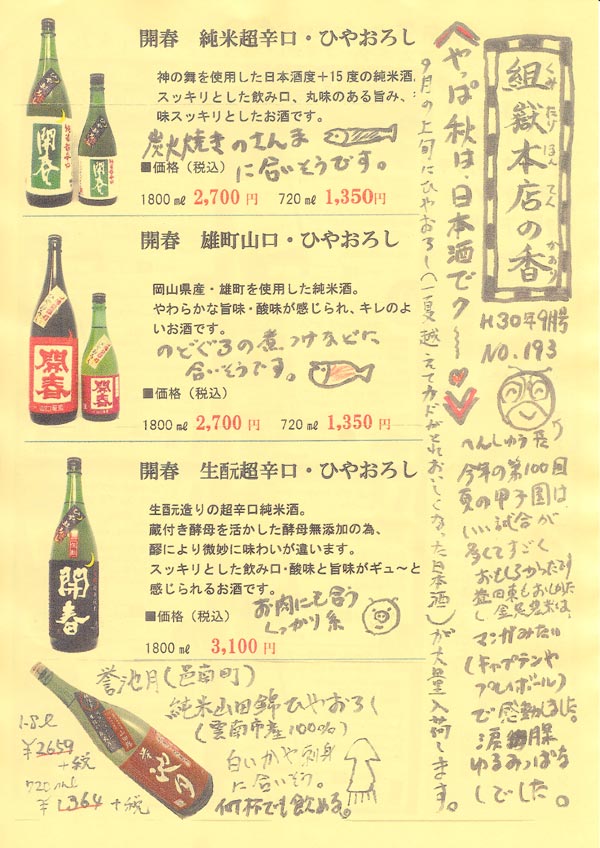 組嶽本店の香
くみ たけ ほん てん かおり
H30年9月号
NO.193
やっぱ秋は、日本酒でク〜
9月の上旬にひやおろし(一夏越えてカドがとれおいしくなった日本酒)が大量入荷します。
開春 純米超辛口・ひやおろし
神の舞を使用した日本酒度＋15度の純米酒。
スッキリとした飲み口、丸味のある旨み、
味スッキリとしたお酒です。
炭火焼きのさんま
に合いそうです。
■価格（税込）
1800㎖ 2,700円 720㎖ 1,350円
開春 雄町山口・ひやおろし
岡山県産・雄町を使用した純米酒。
やわらかな旨味・酸味が感じられ、キレのよ
いお酒です。
のどぐろの煮つけなどに
合いそうです。
■価格（税込）
1800㎖ 2,700円 720㎖ 1,350円
開春 生酛超辛口・ひやおろし
生酛造りの超辛口純米酒。
蔵付き酵母を活かした酵母無添加の為、
醪により微妙に味わいが違います。
スッキリとした飲み口・酸味と旨味がギュ〜と
感じられるお酒です。
■価格（税込）
お肉にも合う
しっかり系
1800㎖ 3,100円
誉池月(邑南町)
純米山田錦ひやおろし
(雲南市産100%)
白いかや刺身
に合いそう。
何杯でも飲める。
1.8ℓ
¥2659
+税
720ml
¥1364+税
開春
開春
開春
開春
開春
池月
へんしゅう長
今年の第100回
夏の甲子園は
いい試合が
多くてすごく
おもしろかったです
金足農業は、
マンガみたい
(キャプテンや
プレイボール)
で感動しました。
涙腺
ゆるみっぱなし
でした。